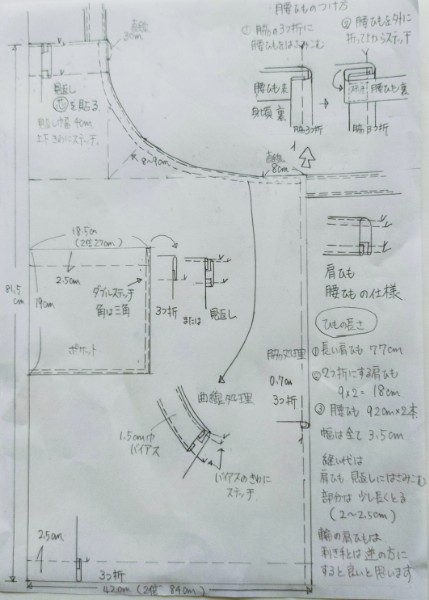 腰ひものつけ方
① 脇の3つ折に
腰ひもをはさみこむ
② 腰ひもを外に
折ってからステッチ
直線
腰ひも表
身頃裏
脇3つ折
腰ひも裏
脇3つ折
見返し
芯を貼る
見返しの幅4cm
上下きわにステッチ
8~9cm
直線
8cm
18.5cm
(2倍27cm)
2.50m
19cm
ダブルステッチ
角は三角
ポケット
3つ折
または
見返し
81.5
cm
肩ひも
腰ひもの仕様
ひもの長さ
① 長い肩ひも 77cm
② 2つ折にする肩ひも
9×2=18cm
③ 腰ひも 92cm×2本
幅は全て3.5cm
脇処理
0.7cm
3つ折
曲線処理
1.5cm巾
バイアス
バイアスのきわに
ステッチ
縫い代は
肩ひも 見返しにはさみこむ
部分は 少し長くとる
(2~2.50m)
輪の肩ひもは
利き手とは逆の方に
すると良いと思います
25cm
3つ折
42cm (2倍 84cm)